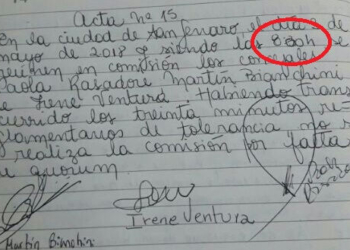 Acta nº 15
En la ciudad de San Jenaro, el día 2 de
mayo de 2018 y siendo las 8:00h se
reúnen en comisión los concejales
Paola Rasadore Martin Bianchini
e Irene Ventura. Habiendo trans
currido los treinta minutos re-
glamentarios de tolerancia no se
realiza la comisión por falta
de quorum
Irene Ventura
Martin Bianchini